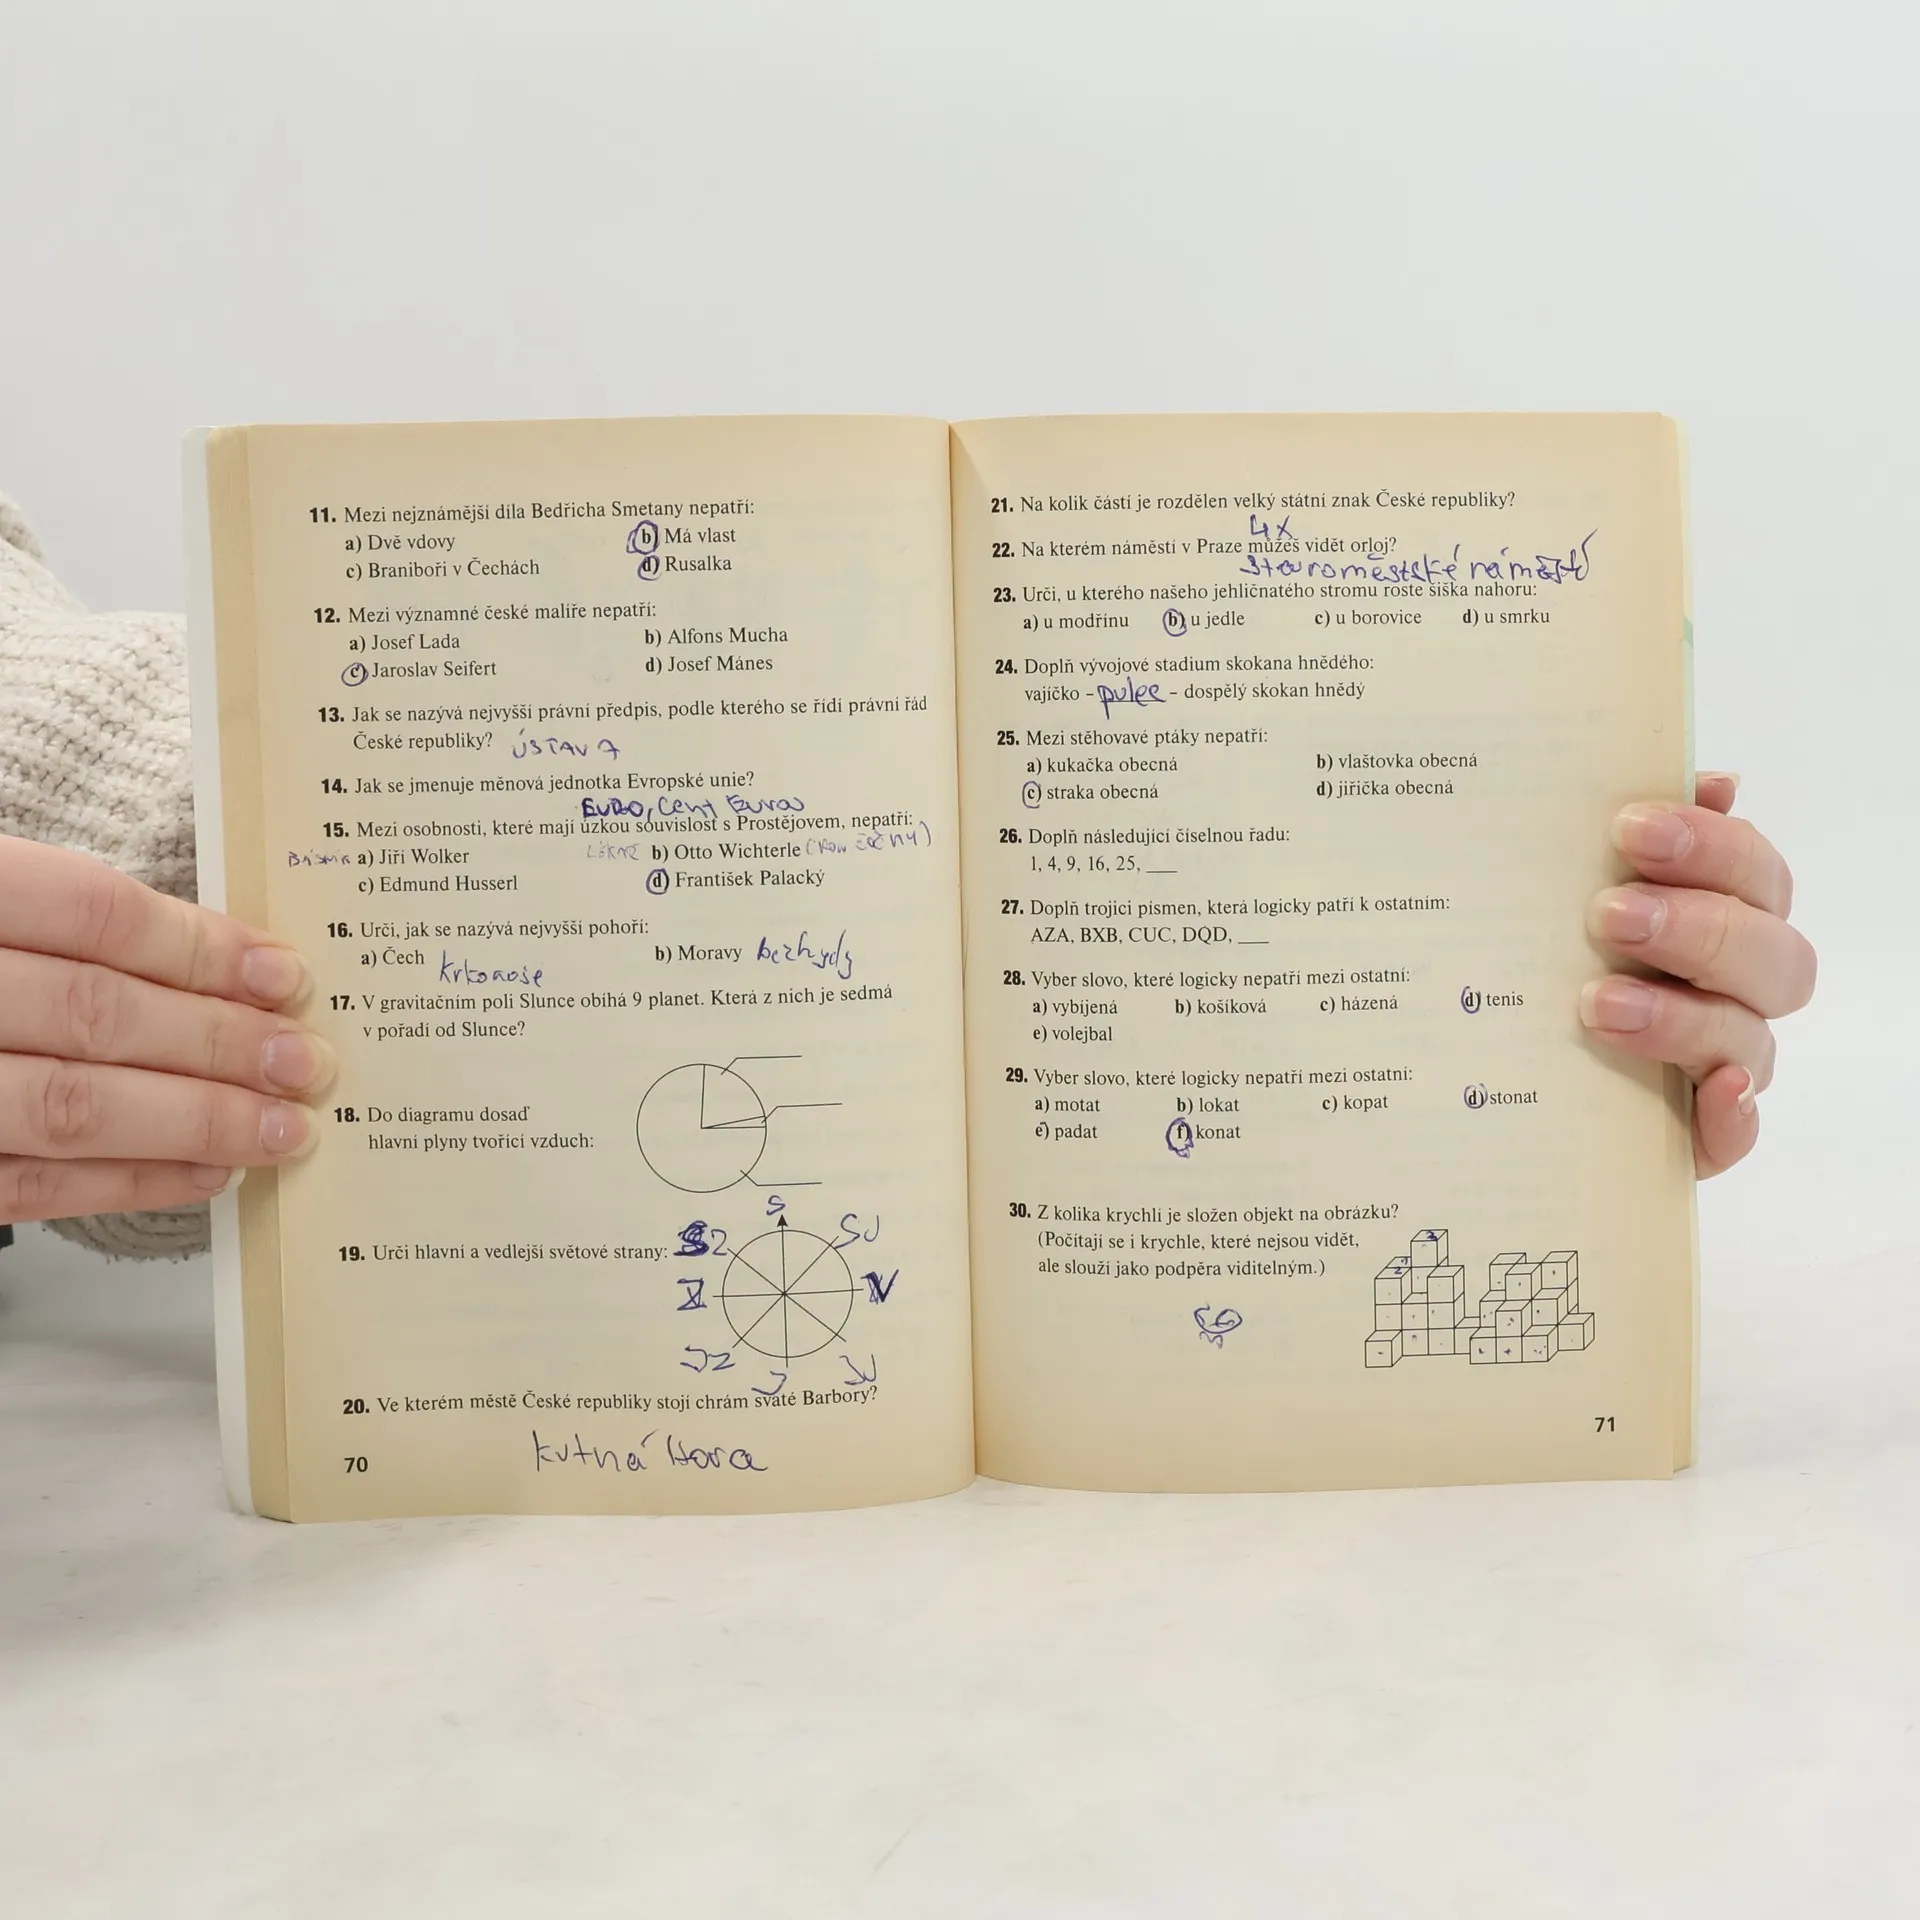 11. Mezi nejznámější díla Bedřicha Smetany nepatří:
a) Dvě vdovy b) Má vlast
c) Braniboři v Čechách d) Rusalka
12. Mezi významné české malíře nepatří:
a) Josef Lada b) Alfons Mucha
c) Jaroslav Seifert d) Josef Mánes
13. Jak se nazývá nejvyšší právní předpis, podle kterého se řídí právní řád
České republiky? ÚSTAVA
14. Jak se jmenuje měnová jednotka Evropské unie?
EURO, cent
15. Mezi osobnosti, které mají úzkou souvislost s Prostějovem, nepatří:
a) Jiří Wolker b) Otto Wichterle
c) Edmund Husserl d) František Palacký
16. Urči, jak se nazývá nejvyšší pohoří:
a) Čech Krkonoše b) Moravy
17. V gravitačním poli Slunce obíhá 9 planet. Která z nich je sedmá
v pořadí od Slunce?
18. Do diagramu dosaď
hlavní plyny tvořící vzduch:
S
SZ SV
19. Urči hlavní a vedlejší světové strany:
Z V
JZ JV
J
20. Ve kterém městě České republiky stojí chrám svaté Barbory?
kutná Hora
70
21. Na kolik částí je rozdělen velký státní znak České republiky?
4x
22. Na kterém náměstí v Praze můžeš vidět orloj?
Staroměstské náměstí
23. Urči, u kterého našeho jehličnatého stromu roste šiška nahoru:
a) u modřínu b) u jedle c) u borovice d) u smrku
24. Doplň vývojové stadium skokana hnědého:
vajíčko – pulec – dospělý skokan hnědý
25. Mezi stěhovavé ptáky nepatří:
a) kukačka obecná b) vlaštovka obecná
c) straka obecná d) jiřička obecná
26. Doplň následující číselnou řadu:
1, 4, 9, 16, 25, ___
27. Doplň trojici písmen, která logicky patří k ostatním:
AZA, BXB, CUC, DQD, ___
28. Vyber slovo, které logicky nepatří mezi ostatní:
a) vybíjená b) košíková c) házená d) tenis
e) volejbal
29. Vyber slovo, které logicky nepatří mezi ostatní:
a) motat b) lokat c) kopat d) stonat
e) padat f) konat
30. Z kolika krychlí je složen objekt na obrázku?
(Počítají se i krychle, které nejsou vidět,
ale slouží jako podpěra viditelným.)
71